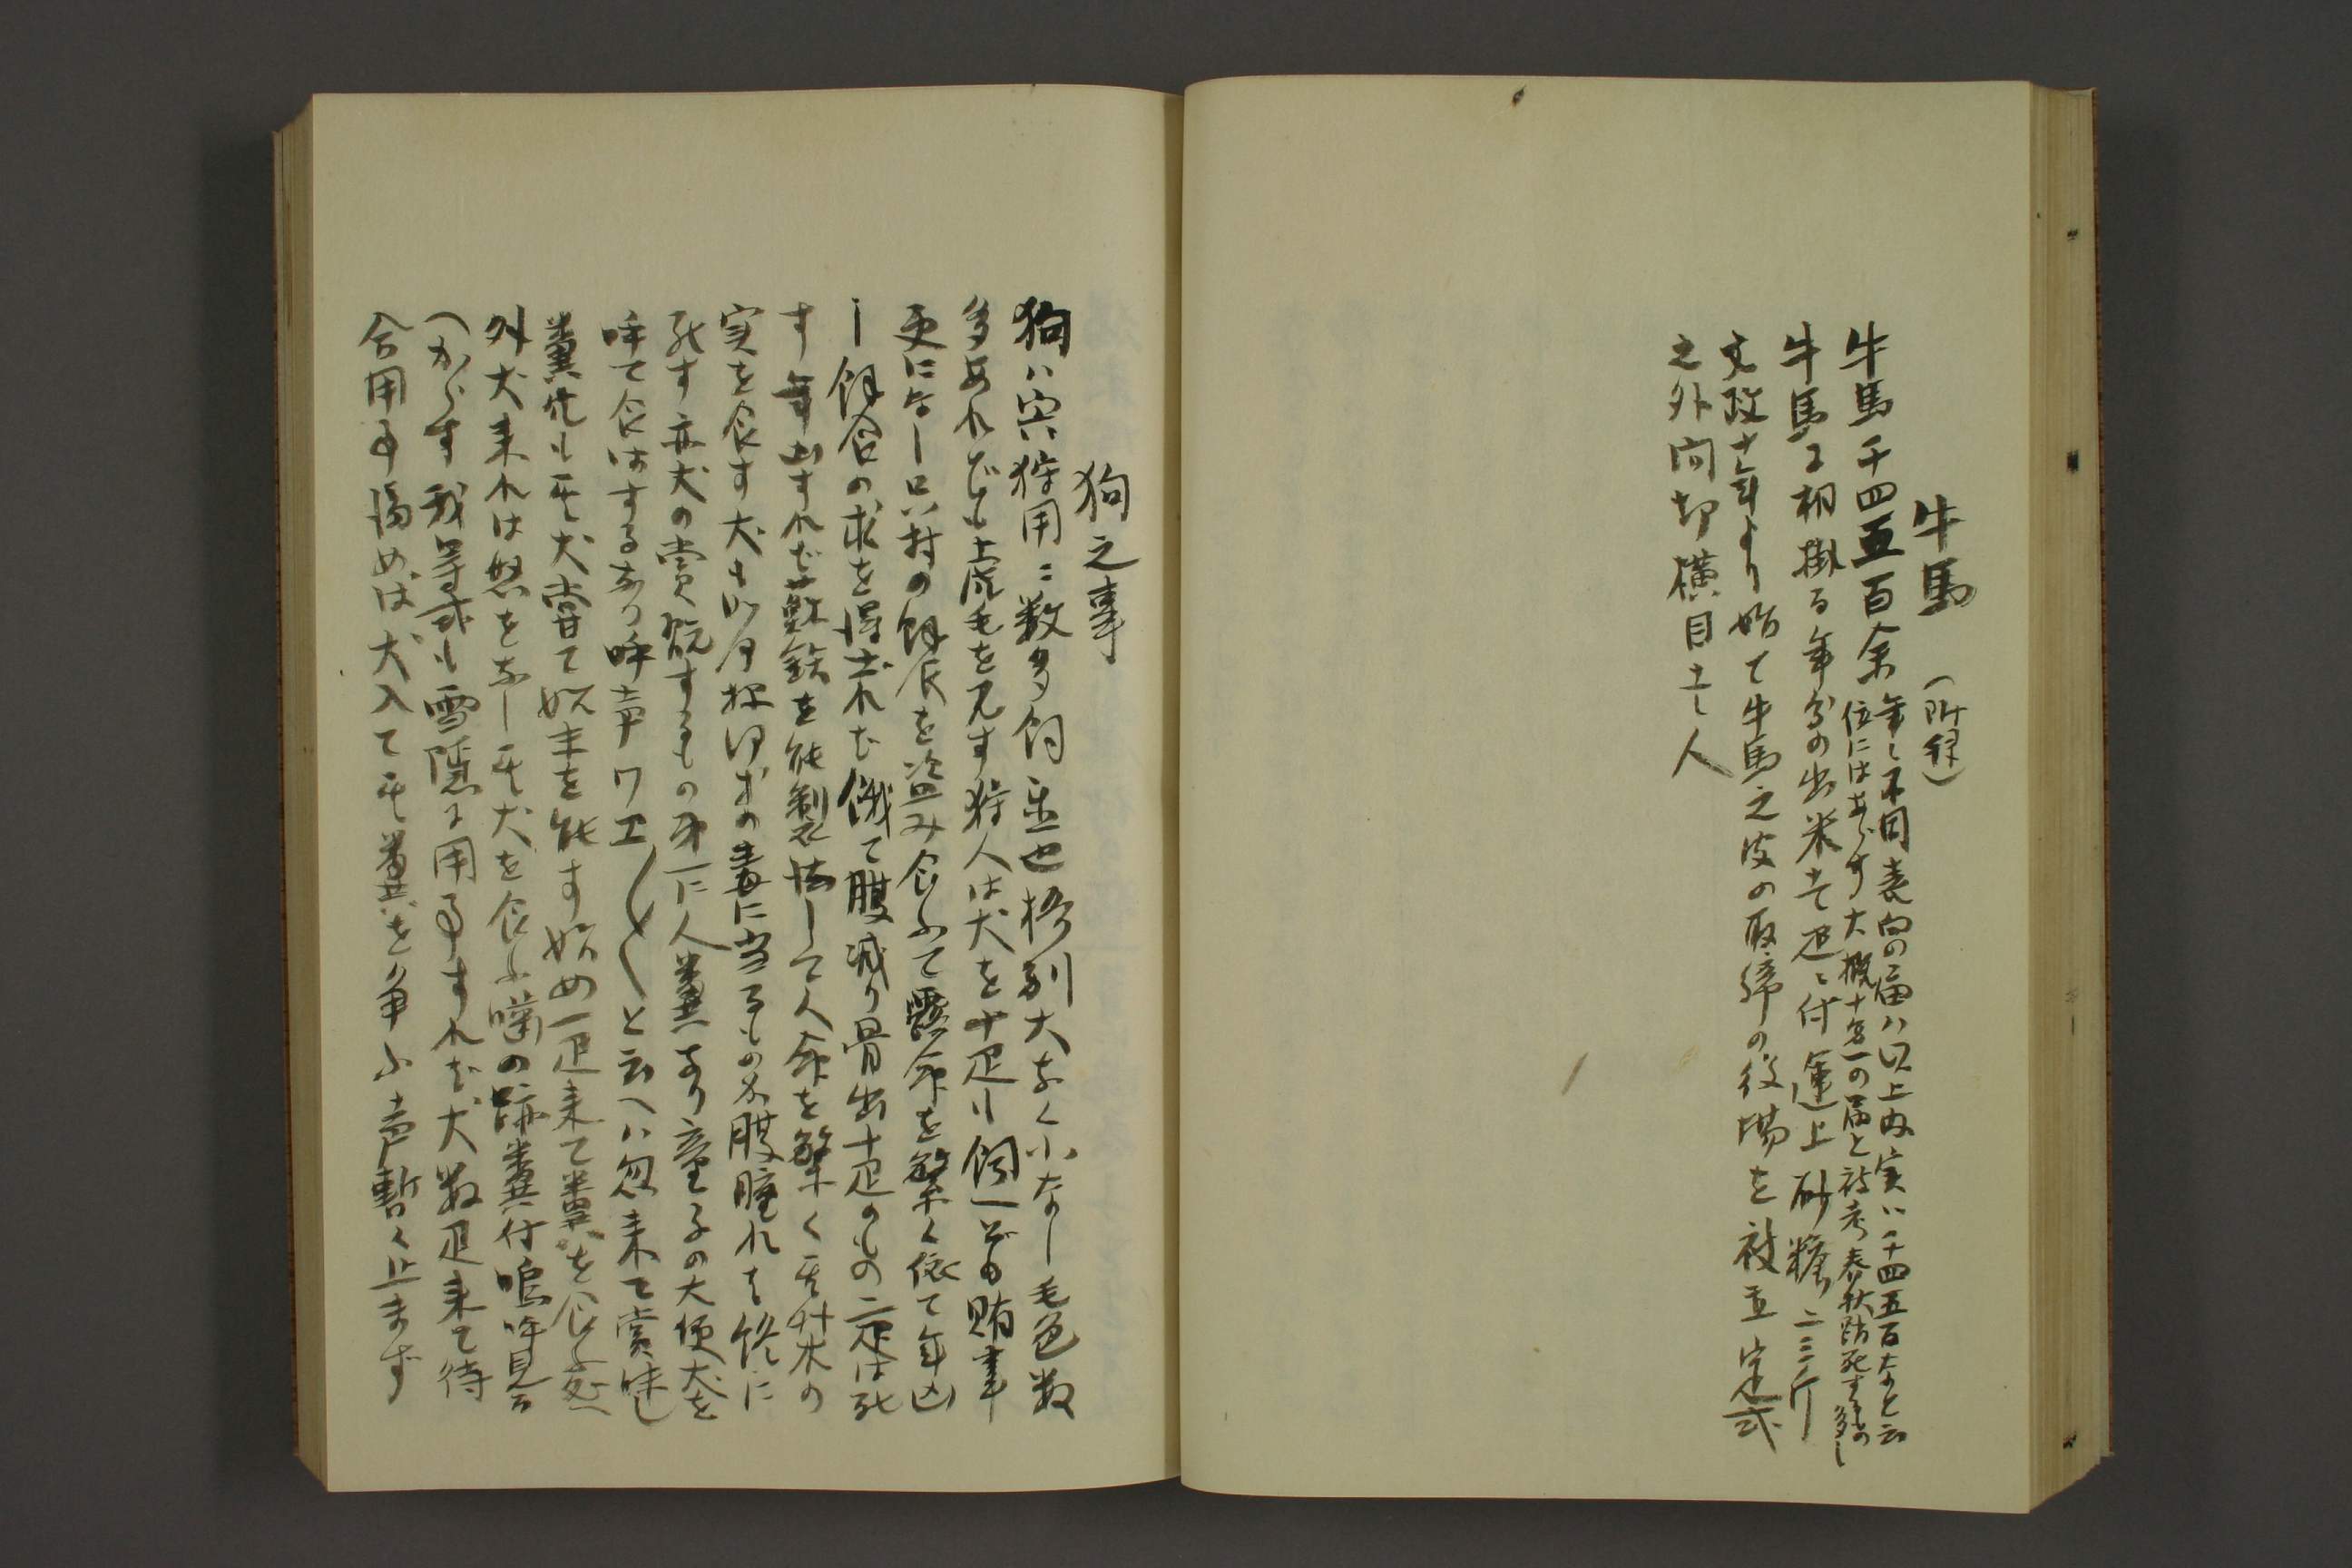 牛馬　(附録)
牛馬千四五百余
年々不同表向の届ハ以上内実ハ千四五百なと云
位にはあらす大概十〆一の届と被考春秋踏死するもの多し
牛馬に相掛る年分の出米壱疋ニ付運上砂糖二三斤
文政十年より始て牛馬之皮の取締の役場を被立定式
之外向切横目壱人
狗之事
狗ハ宍狩用ニ数多飼立也格別大なく小なし毛色数
多あれども虎毛を見す狩人は犬を十疋も飼へども賄事
更になし只村の飯食を盗み食ふて露命を繋く依て年凶
し飯食の求を得ざれば餓て腹減り骨出十疋のもの二疋は死
す年凶すれば蘇鉄を能製法して人命を繋く其材木の
実を食す犬も
死す亦犬の賞翫するもの第一に人糞なり童子の大便犬を
呼て食はするなり呼声ワエ〱〱と云へハ忽来て賞味し
糞尻も其犬嘗て始末を能す始め一疋来て糞を食ふ処へ
外犬来れは怒をなし其犬を食ふ噛の跡糞付嗚呼見る
へからす我等式も雪隠に用事すれば犬数疋来て待
合用事済めば犬入て其糞を争ふ声暫く止まず